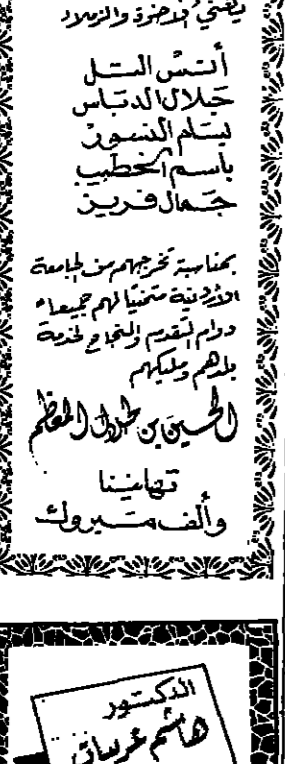 يهنئ الاخوة والزملاء
أنس التل
جلال الدباس
بسام النسور
باسم الخطيب
جمال فريز
بمناسبة تخرجهم من الجامعة
الأردنية متمنيا لهم جميعاً
دوام التقدم والنجاح لخدمة
بلدهم ومليكهم
الحسين بن طلال المعظم
تهانينا
وألف مبروك
الدكتور
هاشم عربيات